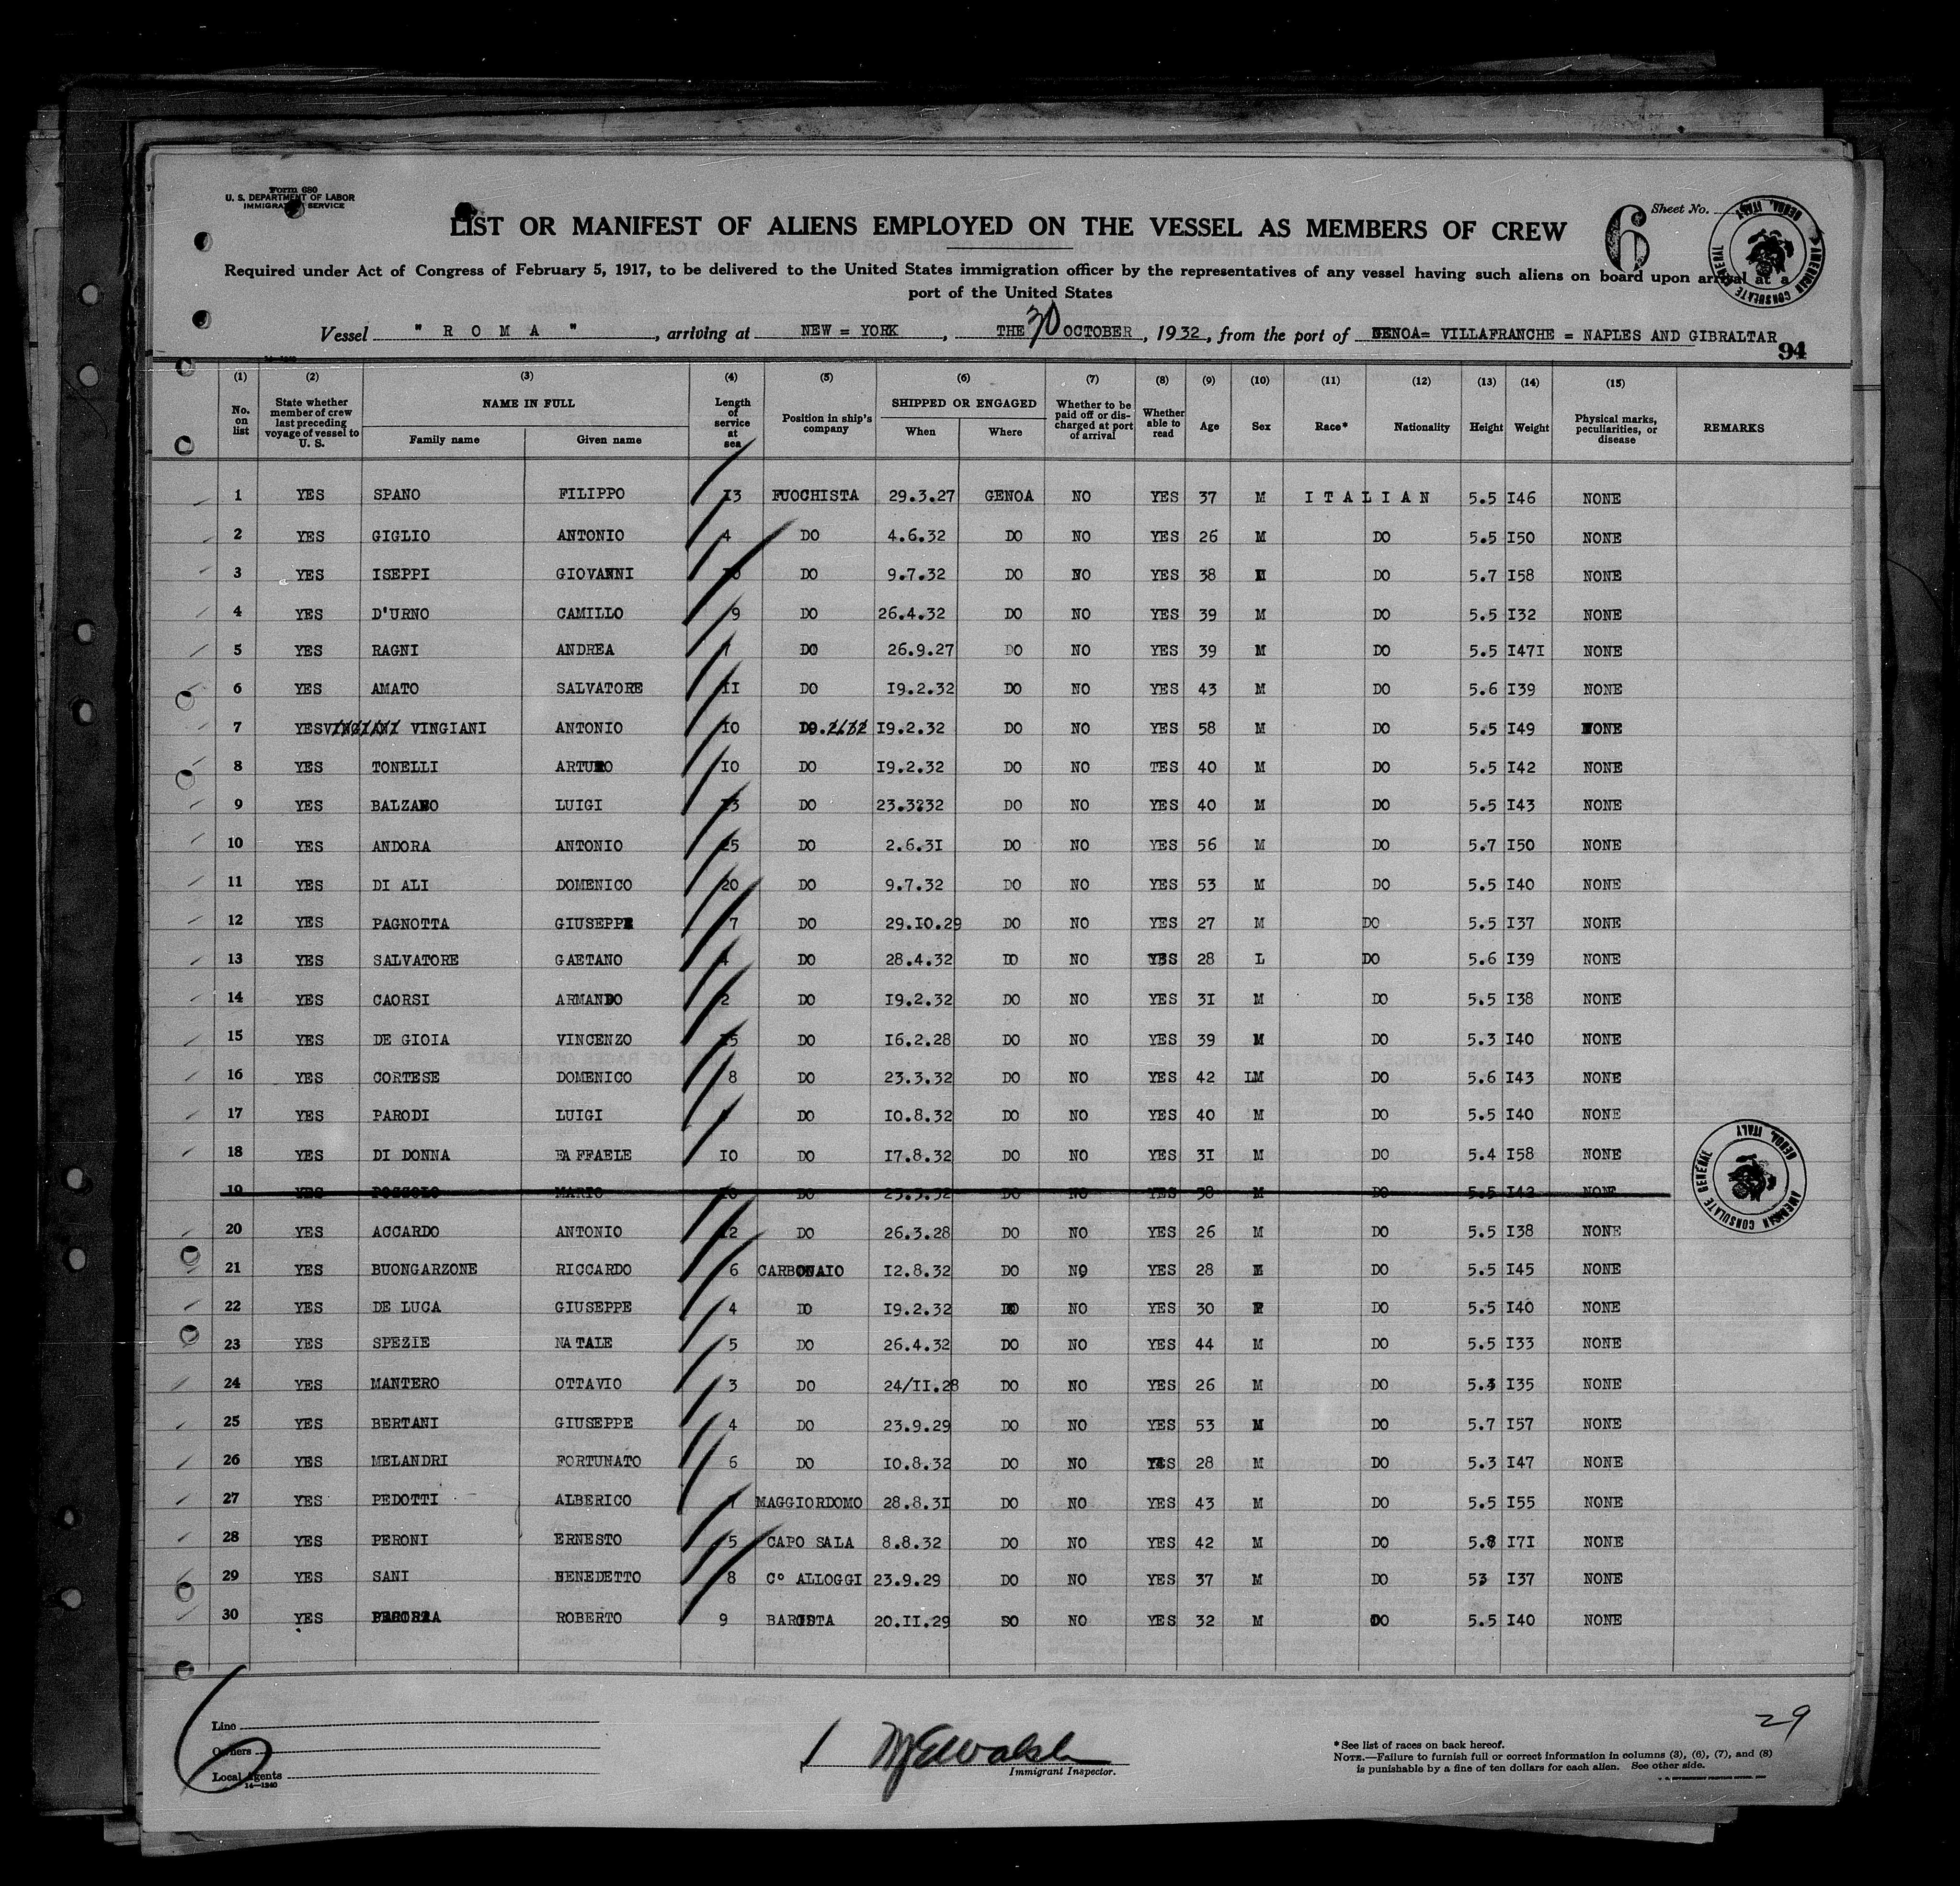 Form 680
U. S. DEPARTMENT OF LABOR
IMMIGRATION SERVICE
LIST OR MANIFEST OF ALIENS EMPLOYED ON THE VESSEL AS MEMBERS OF CREW
6 Sheet No.
AMERICAN CONSULATE GENERAL GENOA, ITALY
Required under Act of Congress of February 5, 1917, to be delivered to the United States immigration officer by the representatives of any vessel having such aliens on board upon arrival at a
port of the United States
Vessel " R O M A ", arriving at NEW = YORK, THE 30 OCTOBER, 1932, from the port of GENOA= VILLAFRANCHE = NAPLES AND GIBRALTAR
94
(1) (2) (3) (4) (5) (6) (7) (8) (9) (10) (11) (12) (13) (14) (15)
No. on list State whether member of crew last preceding voyage of vessel to U. S. NAME IN FULL Family name Given name Length of service at sea Position in ship's company SHIPPED OR ENGAGED When Where Whether to be paid off or discharged at port of arrival Whether able to read Age Sex Race* Nationality Height Weight Physical marks, peculiarities, or disease REMARKS
1 YES SPANO FILIPPO 13 FUOCHISTA 29.3.27 GENOA NO YES 37 M ITALIAN 5.5 I46 NONE
2 YES GIGLIO ANTONIO 4 DO 4.6.32 DO NO YES 26 M DO 5.5 I50 NONE
3 YES ISEPPI GIOVANNI DO 9.7.32 DO NO YES 38 M DO 5.7 I58 NONE
4 YES D'URNO CAMILLO 9 DO 26.4.32 DO NO YES 39 M DO 5.5 I32 NONE
5 YES RAGNI ANDREA DO 26.9.27 DO NO YES 39 M DO 5.5 I47I NONE
6 YES AMATO SALVATORE II DO I9.2.32 DO NO YES 43 M DO 5.6 I39 NONE
7 YES VINGIANI VINGIANI ANTONIO IO DO I9.2.32 DO NO YES 58 M DO 5.5 I49 NONE
8 YES TONELLI ARTURO IO DO I9.2.32 DO NO TES 40 M DO 5.5 I42 NONE
9 YES BALZANO LUIGI DO 23.3?32 DO NO YES 40 M DO 5.5 I43 NONE
10 YES ANDORA ANTONIO 25 DO 2.6.3I DO NO YES 56 M DO 5.7 I50 NONE
11 YES DI ALI DOMENICO 20 DO 9.7.32 DO NO YES 53 M DO 5.5 I40 NONE
12 YES PAGNOTTA GIUSEPPE 7 DO 29.I0.29 DO NO YES 27 M DO 5.5 I37 NONE
13 YES SALVATORE GAETANO 4 DO 28.4.32 DO NO YES 28 L DO 5.6 I39 NONE
14 YES CAORSI ARMANDO 2 DO I9.2.32 DO NO YES 3I M DO 5.5 I38 NONE
15 YES DE GIOIA VINCENZO DO I6.2.28 DO NO YES 39 M DO 5.3 I40 NONE
16 YES CORTESE DOMENICO 8 DO 23.3.32 DO NO YES 42 LM DO 5.6 I43 NONE
17 YES PARODI LUIGI DO I0.8.32 DO NO YES 40 M DO 5.5 I40 NONE
18 YES DI DONNA RAFFAELE IO DO I7.8.32 DO NO YES 3I M DO 5.4 I58 NONE
19 YES POZZOLO MARIO DO 23.3.32 DO NO YES 38 M DO 5.5 I42 NONE
AMERICAN CONSULATE GENERAL GENOA, ITALY
20 YES ACCARDO ANTONIO I2 DO 26.3.28 DO NO YES 26 M DO 5.5 I38 NONE
21 YES BUONGARZONE RICCARDO 6 CARBONAIO I2.8.32 DO NO YES 28 DO 5.5 I45 NONE
22 YES DE LUCA GIUSEPPE 4 DO I9.2.32 DO NO YES 30 DO 5.5 I40 NONE
23 YES SPEZIE NATALE 5 DO 26.4.32 DO NO YES 44 M DO 5.5 I33 NONE
24 YES MANTERO OTTAVIO 3 DO 24/II.28 DO NO YES 26 M DO 5.3 I35 NONE
25 YES BERTANI GIUSEPPE 4 DO 23.9.29 DO NO YES 53 M DO 5.7 I57 NONE
26 YES MELANDRI FORTUNATO 6 DO I0.8.32 DO NO YES 28 M DO 5.3 I47 NONE
27 YES PEDOTTI ALBERICO MAGGIORDOMO 28.8.3I DO NO YES 43 M DO 5.5 I55 NONE
28 YES PERONI ERNESTO 5 CAPO SALA 8.8.32 DO NO YES 42 M DO 5.8 I7I NONE
29 YES SANI BENEDETTO 8 C° ALLOGGI 23.9.29 DO NO YES 37 M DO 53 I37 NONE
30 YES ROBERTO 9 BARISTA 20.II.29 SO NO YES 32 M DO 5.5 I40 NONE
Line
Owners
Local Agents
14—1240
Immigrant Inspector.
29
*See list of races on back hereof.
NOTE.—Failure to furnish full or correct information in columns (3), (6), (7), and (8)
is punishable by a fine of ten dollars for each alien. See other side.